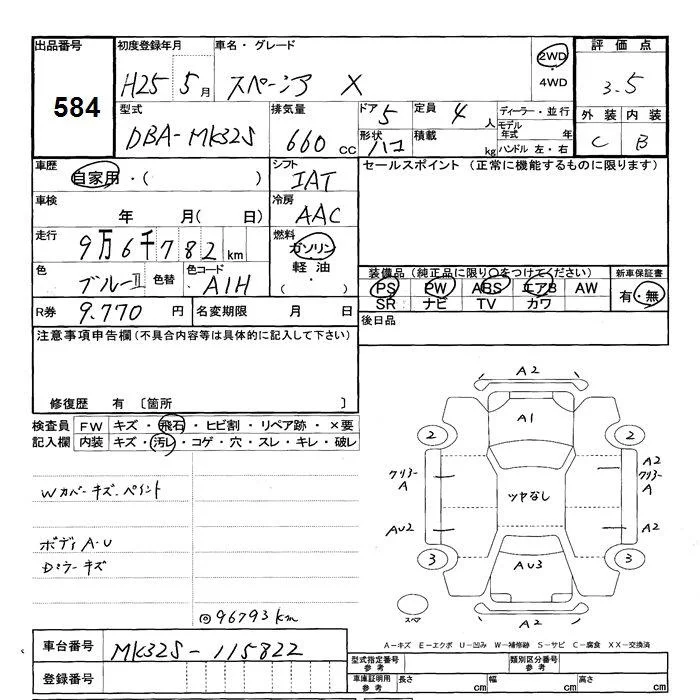 出品番号 初度登録年月 車名・グレード 2WD 評価点
584 H25 5月 スペーシア X 4WD 3.5
型式 排気量 ドア 5 定員 4人 ディーラー・並行 外装 内装
DBA-MK32S 660 CC 形状 ハコ 積載 kg モデル年式 年 C B
ハンドル 左・右
車歴 自家用・( ) シフト IAT セールスポイント (正常に機能するものに限ります)
車検 年 月( 日) 冷房 AAC
走行 9万6千782km 燃料 ガソリン
軽油
( )
色 ブルーII 色替 色コード A1H 装備品(純正品に限り○をつけてください) 新車保証書
PS PW ABS エアB AW 有・無
SR ナビ TV カワ
R券 9.770円 名変期限 月 日 後日品
注意事項申告欄(不具合内容等は具体的に記入して下さい)
修復歴 有 〔箇所 〕
検査員 FW キズ・飛石・ヒビ割・リペア跡・×要
記入欄 内装 キズ・汚レ・コゲ・穴・スレ・キレ・破レ
Wカバーキズ.ペイント
ボディA.U
Dミラーキズ
◎96793km
A2
A1
2 2
クリアー A A2 クリアー A
ツヤなし
AU2 A2
3 AU3 3
スペア A2
A－キズ E－エクボ U－凹み W－補修跡 S－サビ C－腐食 XX－交換済
車台番号 MK32S-115822
登録番号
型式指定番号 参考 類別区分番号 参考
車庫証明用 参考 長さ cm 幅 cm 高さ cm